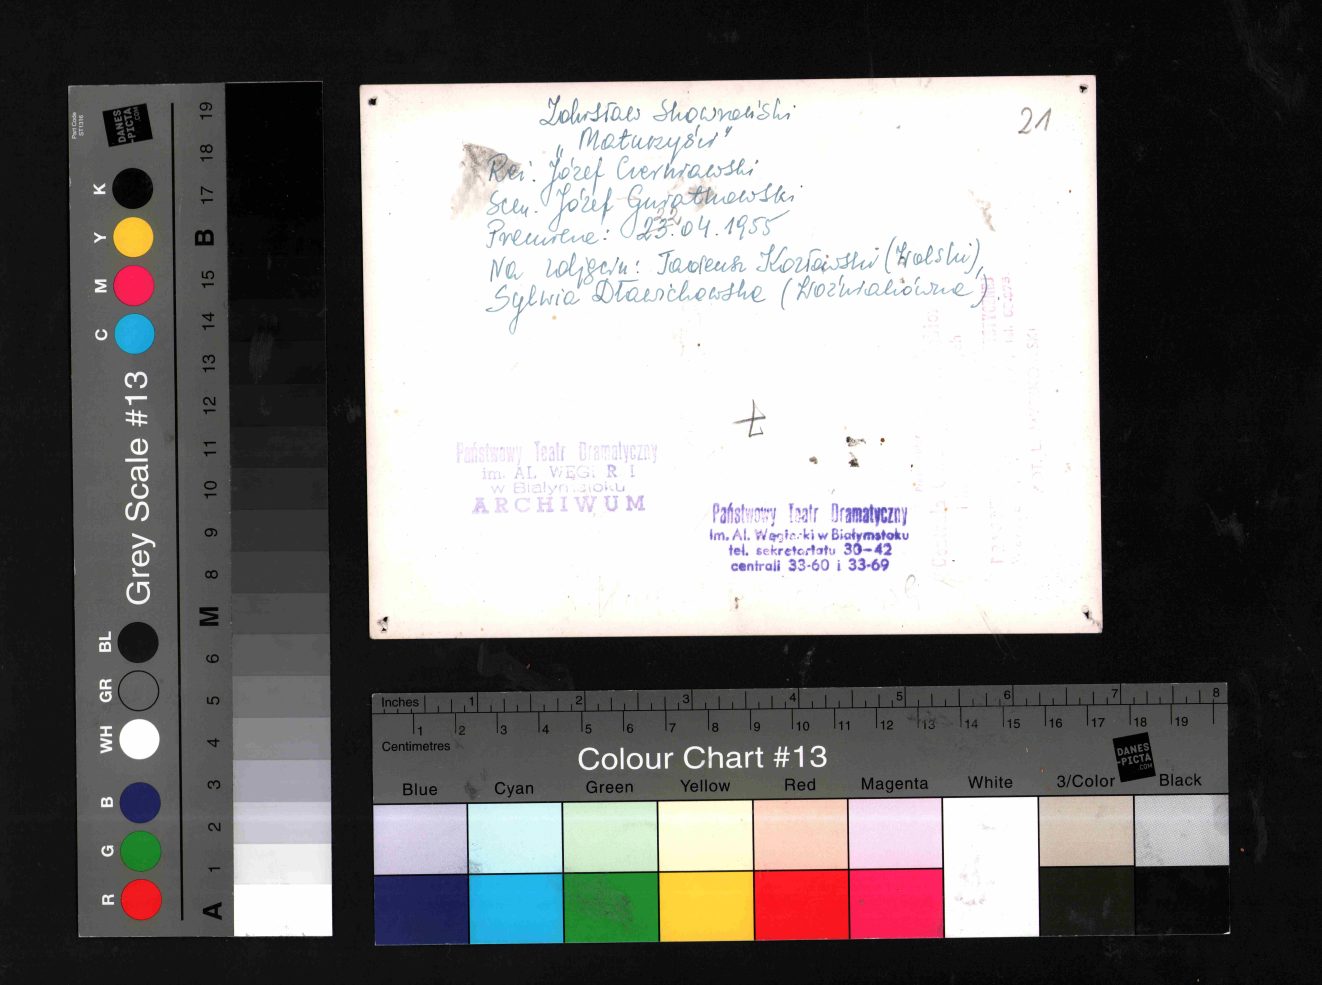 Zdzisław Skowroński
„Maturzyści"
Reż. Józef Czerniawski
Scen. Józef Gwiatkowski
Premiera: 23.04.1955
22
Na zdjęciu: Tadeusz Kozłowski (Wolski),
Sylwia Dławichowska (Woźniakówna)
21
Państwowy Teatr Dramatyczny
im. AL. WĘGI R I
w Białymstoku
ARCHIWUM
Państwowy Teatr Dramatyczny
im. Al. Węgierki w Białymstoku
tel. sekretariatu 30-42
centrali 33-60 i 33-69
Part Code
ST1316
DANES
-PICTA
.COM
Grey Scale #13
K
Y
M
C
BL
GR
WH
B
G
R
19
18
17
B
15
14
13
12
11
10
9
8
M
6
5
4
3
2
1
A
Inches 1 2 3 4 5 6 7 8
1 2 3 4 5 6 7 8 9 10 11 12 13 14 15 16 17 18 19
Centimetres
Colour Chart #13
DANES
-PICTA
.COM
Blue Cyan Green Yellow Red Magenta White 3/Color Black